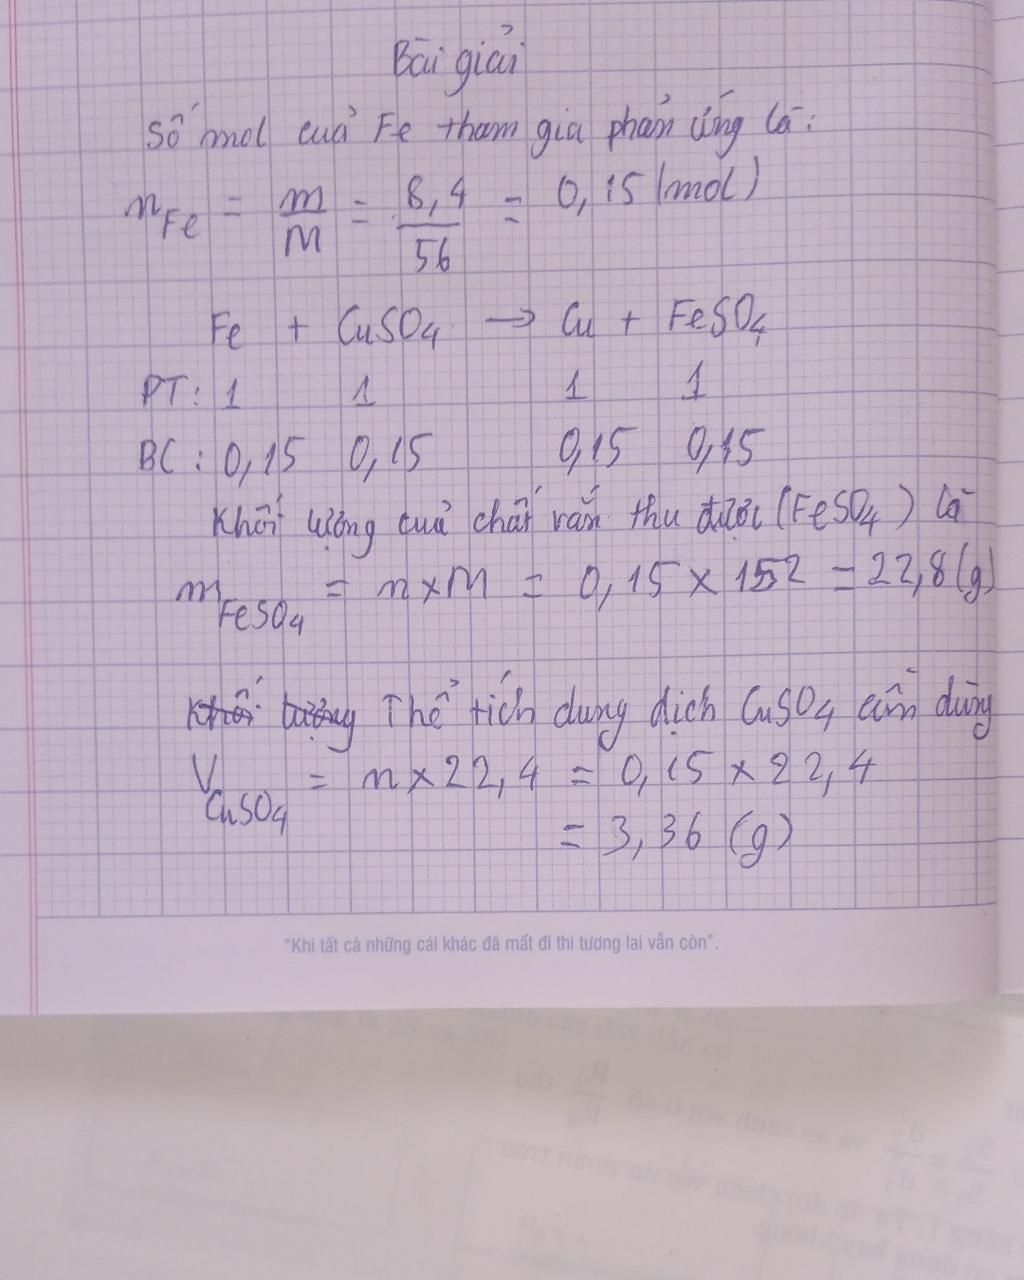 Bài giải
Số mol cuả Fe tham gia phản ứng là:
n Fe = m/M = 8,4/56 = 0,15 (mol)
Fe + CuSO4 → Cu + FeSO4
PT: 1 1 1 1
BC: 0,15 0,15 0,15 0,15
Khối lượng cuả chất rắn thu được (FeSO4) là
m FeSO4 = n x M = 0,15 x 152 = 22,8 (g)
Khối lượng Thể tích dung dịch CuSO4 cần dùng
V CuSO4 = n x 22,4 = 0,15 x 22,4
= 3,36 (g)
"Khi tất cả những cái khác đã mất đi thì tương lai vẫn còn".